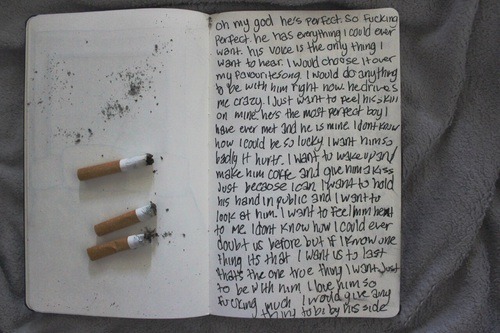 oh my god he's perfect. So Fucking
perfect. he has everything I could ever
want. his voice is the only thing I
want to hear. I would choose it over
my favourite song. I would do anything
to be with him right now. he drives
me crazy. I Just want to feel his skin
on mine. he's the most perfect boy I
have ever met and he is mine. I dont know
how I could be so lucky. I want him so
badly it hurts. I want to wake up and
make him coffe and give him a kiss
Just because I can. I want to hold
his hand in public and I want to
look at him. I want to feel him next
to me. I dont know how I could ever
doubt us before but if I know one
thing its that I want us to last
thats the one true thing I want Just
to be with him. I love him so
fucking much I would give any
thing to be by his side